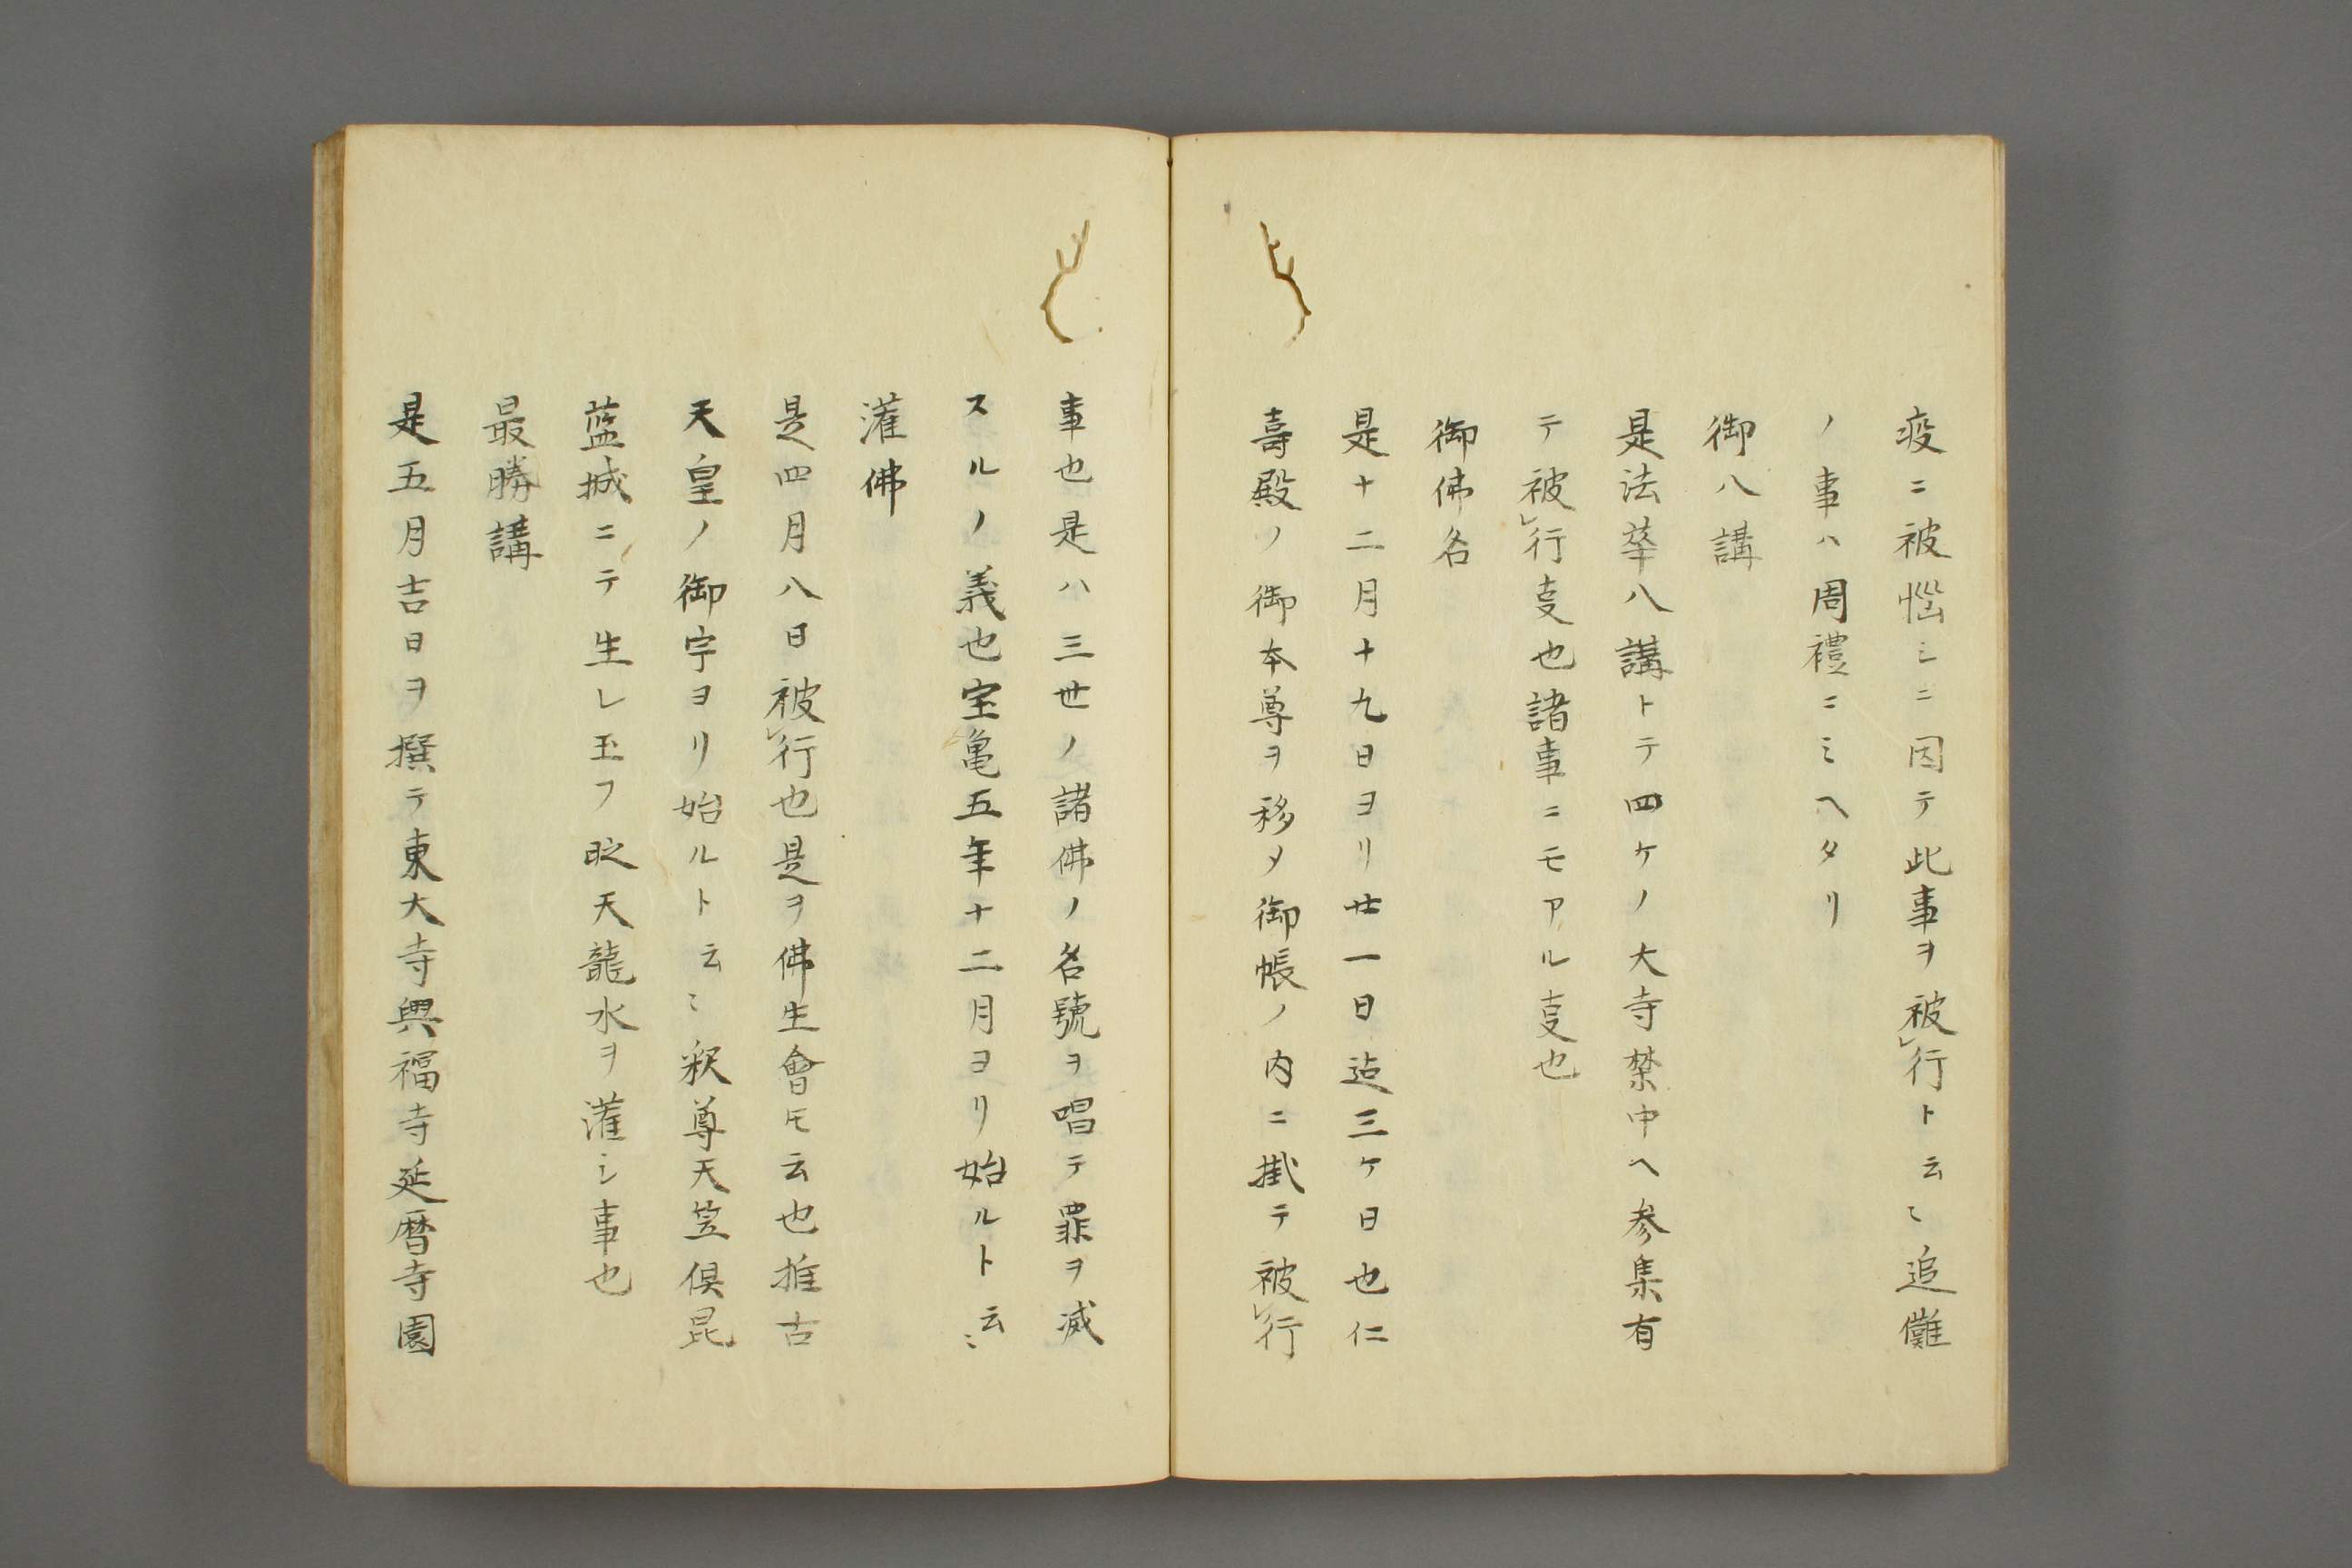 疫ニ被惱シニ因テ此事ヲ被レ行ト云〻追儺
ノ事ハ周禮ニミヘタリ
御八講
是法華八講トテ四ケノ大寺禁中ヘ参集有
テ被レ行叓也諸事ニモアル叓也
御佛名
是十二月十九日ヨリ廿一日迠三ケ日也仁
壽殿ノ御本尊ヲ移メ御帳ノ内ニ掛テ被レ行
事也是ハ三世ノ諸佛ノ名號ヲ唱テ罪ヲ滅
スルノ義也宝亀五年十二月ヨリ始ルト云〻
灌佛
是四月八日被レ行也是ヲ佛生會モ云也推古
天皇ノ御宇ヨリ始ルト云〻釈尊天笠倶昆
蓝城ニテ生レ玉フ時天龍水ヲ灌シ事也
最勝講
是五月吉日ヲ撰テ東大寺興福寺延暦寺園